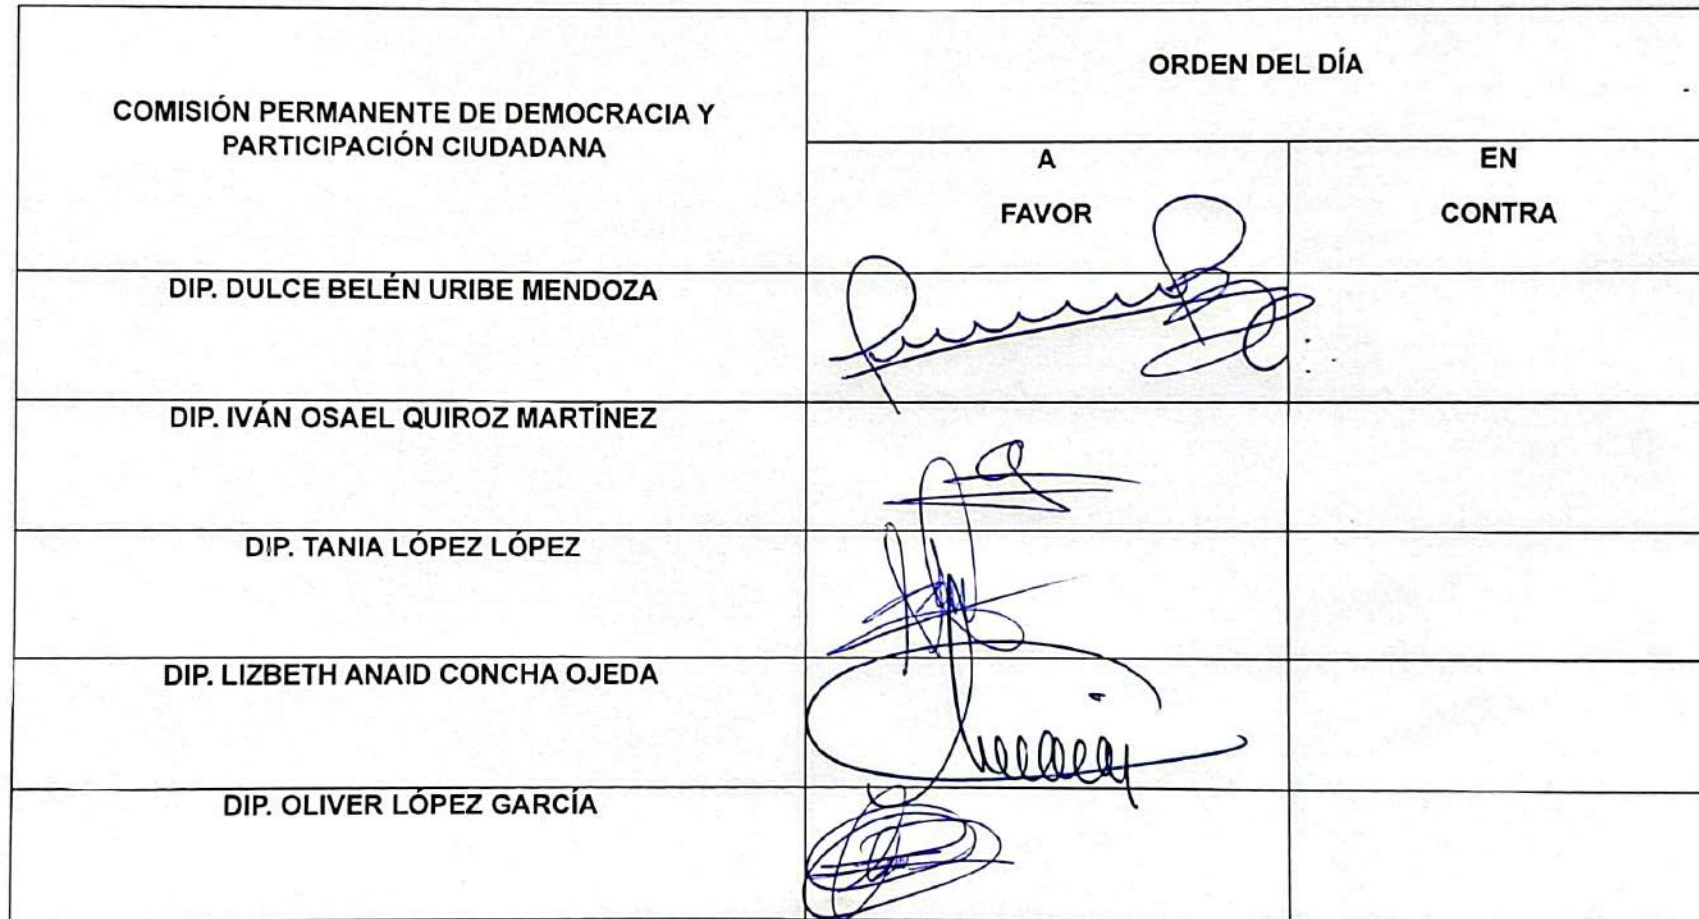 COMISIÓN PERMANENTE DE DEMOCRACIA Y
PARTICIPACIÓN CIUDADANA
ORDEN DEL DÍA
A
FAVOR
EN
CONTRA
DIP. DULCE BELÉN URIBE MENDOZA
DIP. IVÁN OSAEL QUIROZ MARTÍNEZ
DIP. TANIA LÓPEZ LÓPEZ
DIP. LIZBETH ANAID CONCHA OJEDA
DIP. OLIVER LÓPEZ GARCÍA